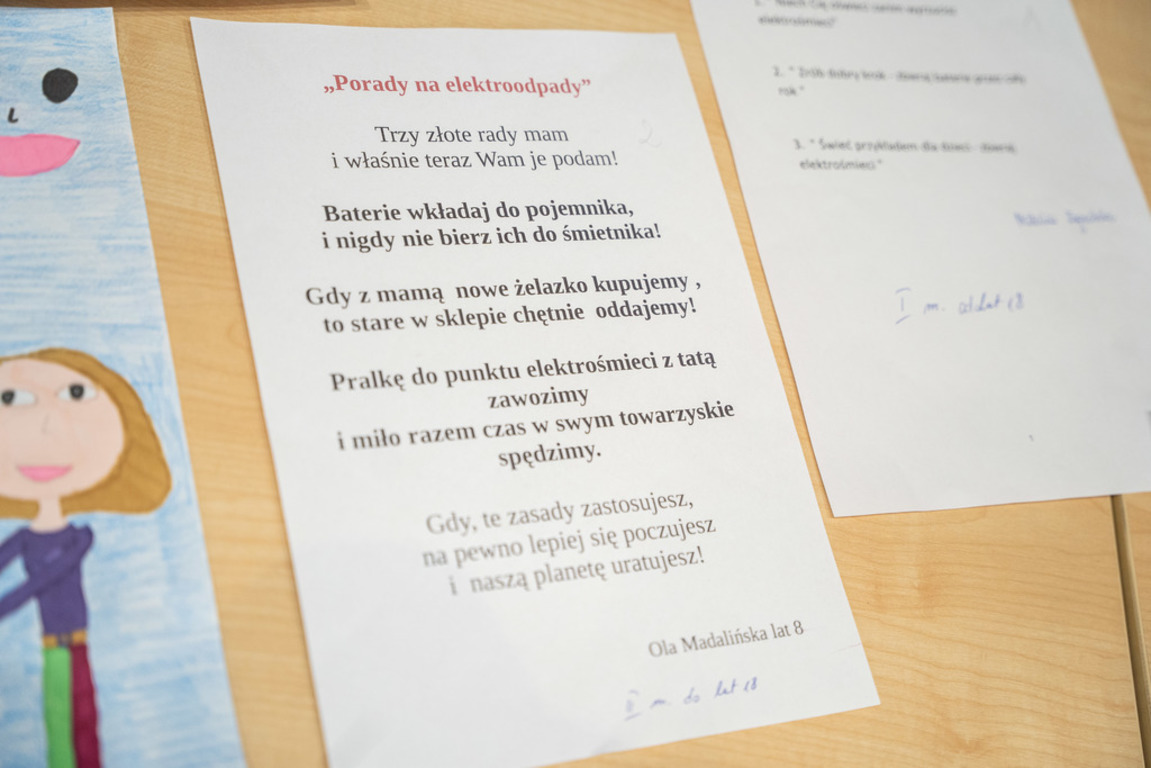 „Porady na elektroodpady”
Trzy złote rady mam
i właśnie teraz Wam je podam!
Baterie wkładaj do pojemnika,
i nigdy nie bierz ich do śmietnika!
Gdy z mamą nowe żelazko kupujemy ,
to stare w sklepie chętnie oddajemy!
Pralkę do punktu elektrośmieci z tatą
zawozimy
i miło razem czas w swym towarzyskie
spędzimy.
Gdy, te zasady zastosujesz,
na pewno lepiej się poczujesz
i naszą planetę uratujesz!
Ola Madalińska lat 8
II m. do lat 18
2
elektrośmieci"
2. " Zrób dobry krok - zbieraj baterie przez cały
rok "
3. " Świeć przykładem dla dzieci - zbieraj
elektrośmieci "
I m. lat 18